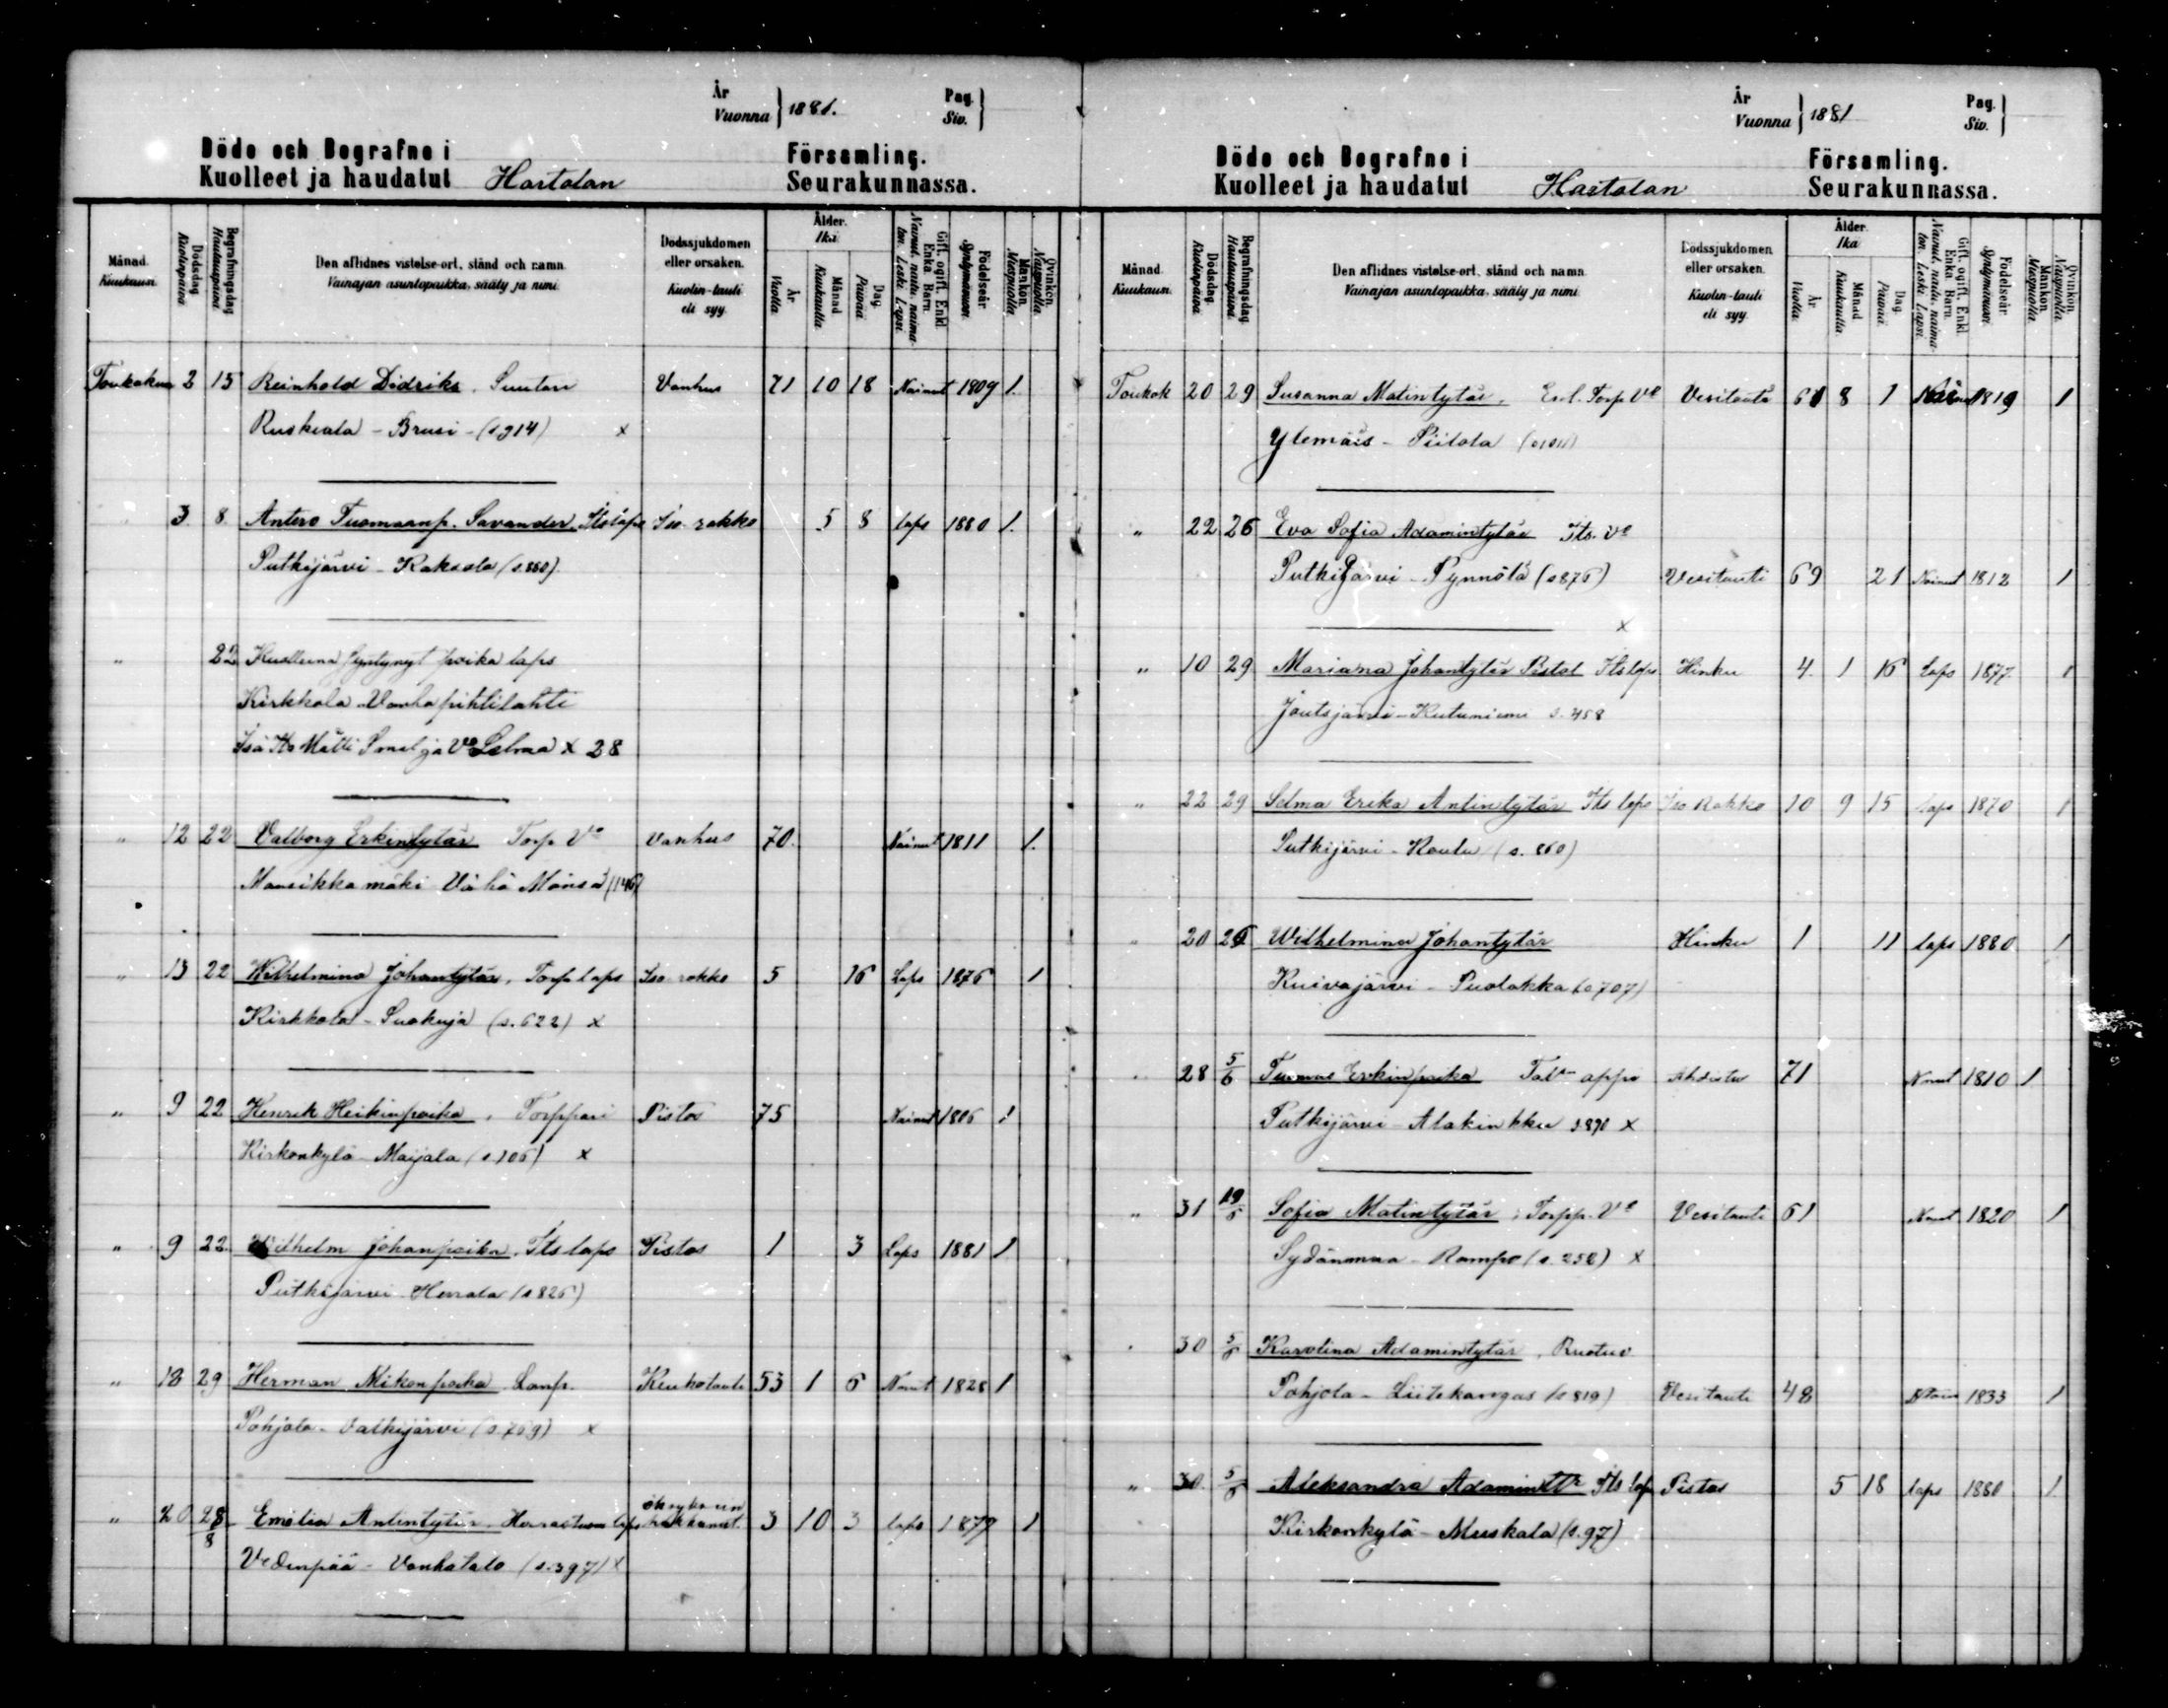 År
Vuonna } 1881.
Pag.
Siv. }
Döde och Begrafne i Församling.
Kuolleet ja haudatut Hartolan Seurakunnassa.
Månad. Kuukausi.
Dödsdag. Kuolinpäivä.
Begrafningsdag. Hautauspäivä.
Den aflidnes vistelse-ort, stånd och namn.
Vainajan asuntopaikka, sääty ja nimi.
Dödssjukdomen eller orsaken.
Kuolin-tauti eli syy.
Ålder. Ikä
År Vuotta.
Månad Kuukautta
Dag. Päivää.
Gift, ogift, Enkl. Enka. Barn. Nainut, naitu, naimaton. Leski. Lapsi.
Födelseår. Syntymävuosi.
Mankön. Miespuolta.
Qvinkön. Naispuolta.
Toukokuu 2 15 Reinhold Didriks. Suutari Vanhus 71 10 18 Nainut 1809 1.
Ruskeala - Brusi - (s 914) x
3 8 Antero Tuomaanp. Savander Itslaps Iso-rokko 5 8 laps 1880 1.
Putkijärvi - Kaksola (s. 860)
„ 22 Kuolleena syntynyt poika laps
Kirkkola - Vanhapihtilahti
Isä Its Matti Smal ja Vo Selma x 28
„ 12 22 Valborg Erkintytär Torp. Vo Vanhus 70. Nainut 1811 1.
Mansikkamäki Vähä Mänsä (146)
„ 13 22 Wilhelmina Johantytär, Torp laps Iso-rokko 5 16 Laps 1876 1
Kirkkola - Suokuja (s. 622) x
„ 9 22 Henrik Heikinpoika, Torppari Pistos 75 Nainut 1806 1
Kirkonkylä - Maijala (s. 106) x
„ 9 22 Wilhelm Johanpoika, Its laps Pistos 1 3 Laps 1881 1
Putkijärvi - Herrala (s 826)
„ 18 29 Herman Mikonpoika Lamp. Keuhotauti 53 1 6 Nnut 1828 1
Pohjola - Valkijärvi (s. 769) x
„ 20 28/8 Emilia Antintytär laps 3 10 3 laps 1879 1
Vedenpää - Vanhatalo (s. 397) x
År
Vuonna } 1881
Pag.
Siv. }
Döde och Begrafne i Församling.
Kuolleet ja haudatut Hartolan Seurakunnassa.
Månad. Kuukausi.
Dödsdag. Kuolinpäivä.
Begrafningsdag. Hautauspäivä.
Den aflidnes vistelse-ort, stånd och namn.
Vainajan asuntopaikka, sääty ja nimi.
Dödssjukdomen eller orsaken.
Kuolin-tauti eli syy.
Ålder. Ikä
År Vuotta.
Månad Kuukautta
Dag. Päivää.
Gift, ogift, Enkl. Enka. Barn. Nainut, naitu, naimaton. Leski. Lapsi.
Födelseår. Syntymävuosi.
Mankön. Miespuolta.
Qvinkön. Naispuolta.
Toukok 20 29 Susanna Matintytär, Torp Vo Vesitauti 61 8 1 1819 1
Ylemäis - Piilola
„ 22 26 Eva Sofia Adamintytär Its. Vo
Putkijärvi - Pynnölä (s 876) Vesitauti 69 21 Nainut 1812 1
x
„ 10 29 Mariana Johantytär Pistol Its laps Hinku 4. 1 16 Laps 1877 1
Joutsjärvi - Kutuniemi s. 458
„ 22 29 Selma Erika Antintytär Its laps Iso Rokko 10 9 15 laps 1870 1
Putkijärvi - Koulu (s. 860)
„ 20 26 Wilhelmina Johantytär Hinku 1 11 laps 1880 1
Kuivajärvi - Puolakka (s 707)
„ 28 5/6 Tuomas Erkinpoika Tal. appi Ahdistus 71 Nnut 1810 1
Putkijärvi - Alakinkku s 890 x
„ 31 19/6 Sofia Matintytär, Torpp. Vo Vesitauti 61 Nnut 1820 1
Sydänmaa - Rampo (s. 258) x
„ 30 5/6 Karolina Adamintytär, Ruotuv.
Pohjola - Liitskangas (s 819) Vesitauti 48 1833 1
„ 30 5/6 Aleksandra Adamintr Its lap Pistos 5 18 laps 1880 1
Kirkonkylä - Muskala (s. 97)